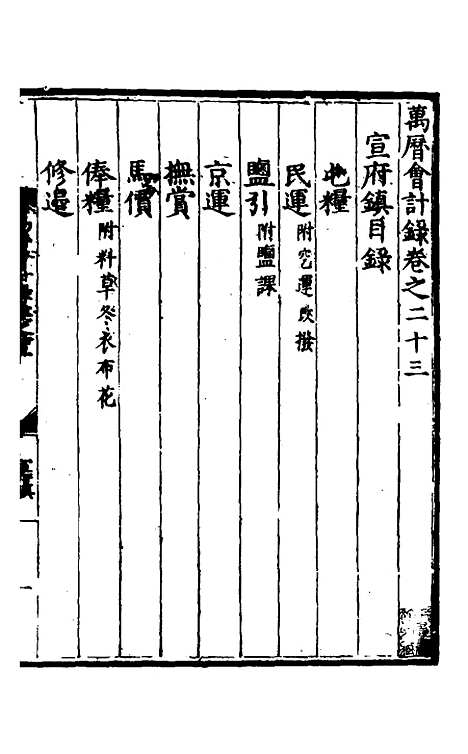 萬曆會計錄卷之二十三
宣府鎮目錄
屯糧
民運 附空運改撥
鹽引 附鹽課
京運
撫賞
馬價
俸糧 附料草冬衣布花
修邊